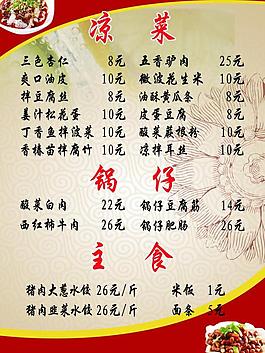 凉菜
三色杏仁 8元 五香驴肉 25元
爽口油皮 10元 微波花生米 10元
拌豆腐丝 8元 油酥黄瓜条 8元
姜汁松花蛋 10元 皮蛋豆腐 8元
丁香鱼拌菠菜 10元 酸菜蕨根粉 10元
香椿苗拌腐竹 10元 凉拌耳丝 10元
锅仔
酸菜白肉 22元 锅仔豆腐筋 14元
西红柿牛肉 26元 锅仔肥肠 26元
主食
猪肉大葱水饺 26元/斤 米饭 1元
猪肉韭菜水饺 26元/斤 面条 5元